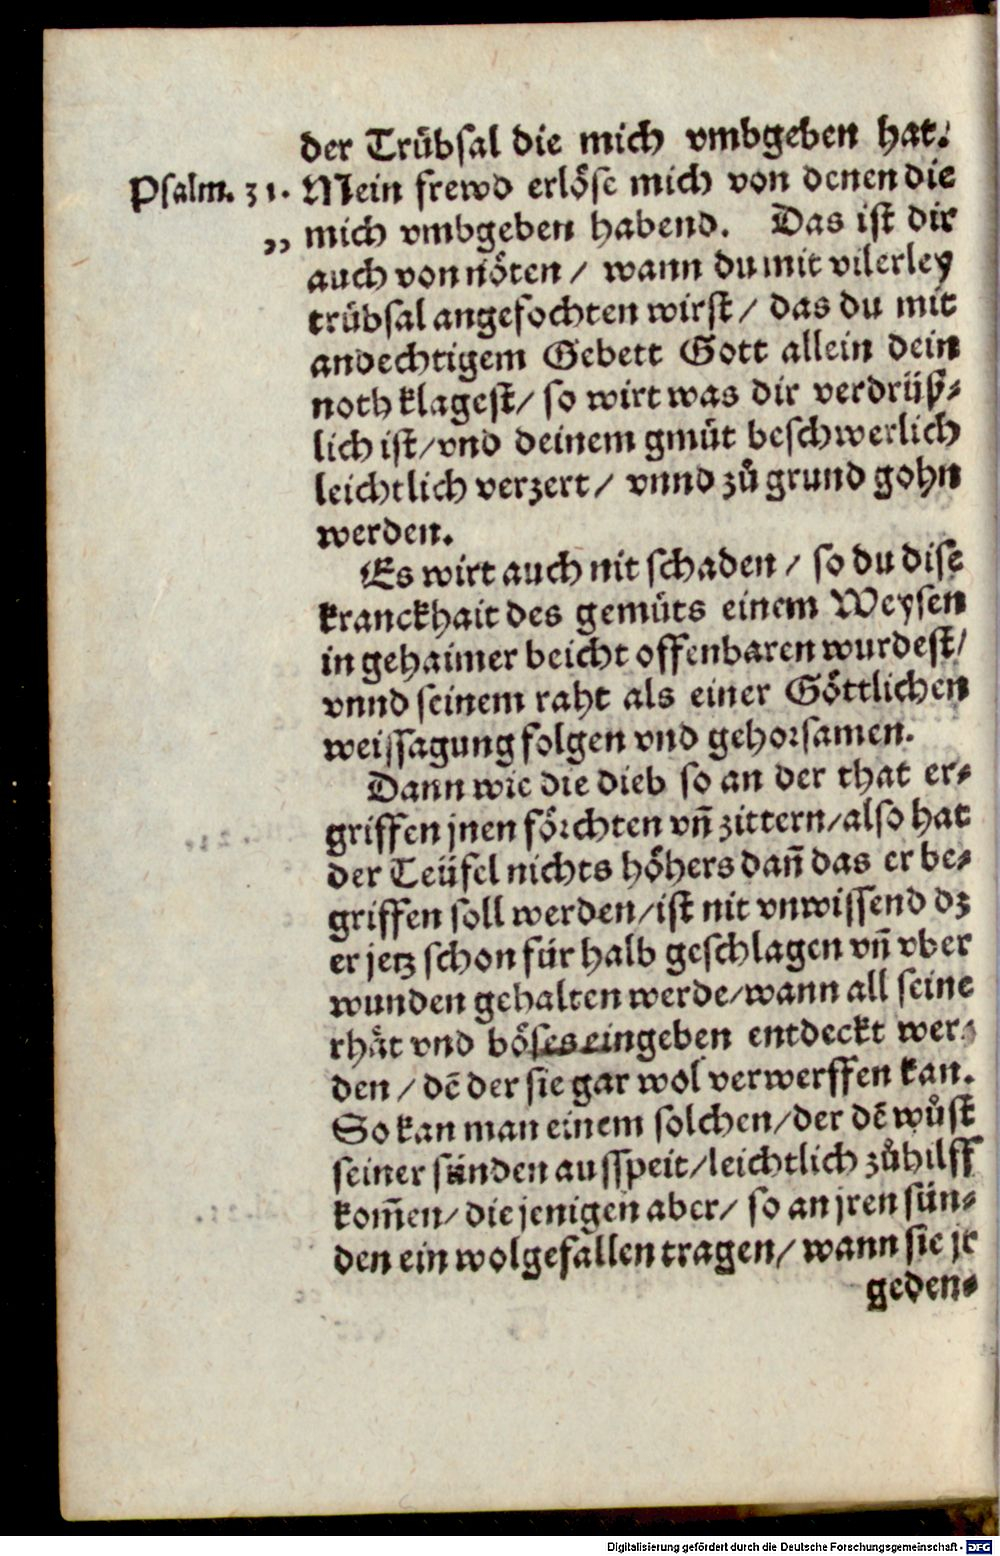 der Trübsal die mich vmbgeben hat.
Psalm. 31. Mein frewd erlöse mich von denen die
„ mich vmbgeben habend. Das ist dir
auch von nöten / wann du mit vilerley
trübsal angefochten wirst / das du mit
andechtigem Gebett Gott allein dein
noth klagest / so wirt was dir verdrüß⸗
lich ist / vnd deinem gmüt beschwerlich
leichtlich verzert / vnnd zů grund gohn
werden.
Es wirt auch nit schaden / so du dise
kranckhait des gemüts einem Weysen
in gehaimer beicht offenbaren wurdest /
vnnd seinem raht als einer Göttlichen
weissagung folgen vnd gehorsamen.
Dann wie die dieb so an der that er⸗
griffen jnen förchten vn̄ zittern / also hat
der Teüfel nichts höhers dan̄ das er be⸗
griffen soll werden / ist nit vnwissend dz
er jetz schon für halb geschlagen vn̄ vber
wunden gehalten werde / wann all seine
rhät vnd böses eingeben entdeckt wer⸗
den / dē der sie gar wol verwerffen kan.
So kan man einem solchen / der dē wůst
seiner sünden ausspeit / leichtlich zůhilff
kom̄en / die jenigen aber / so an jren sün⸗
den ein wolgefallen tragen / wann sie jr
geden⸗
Digitalisierung gefördert durch die Deutsche Forschungsgemeinschaft - DFG